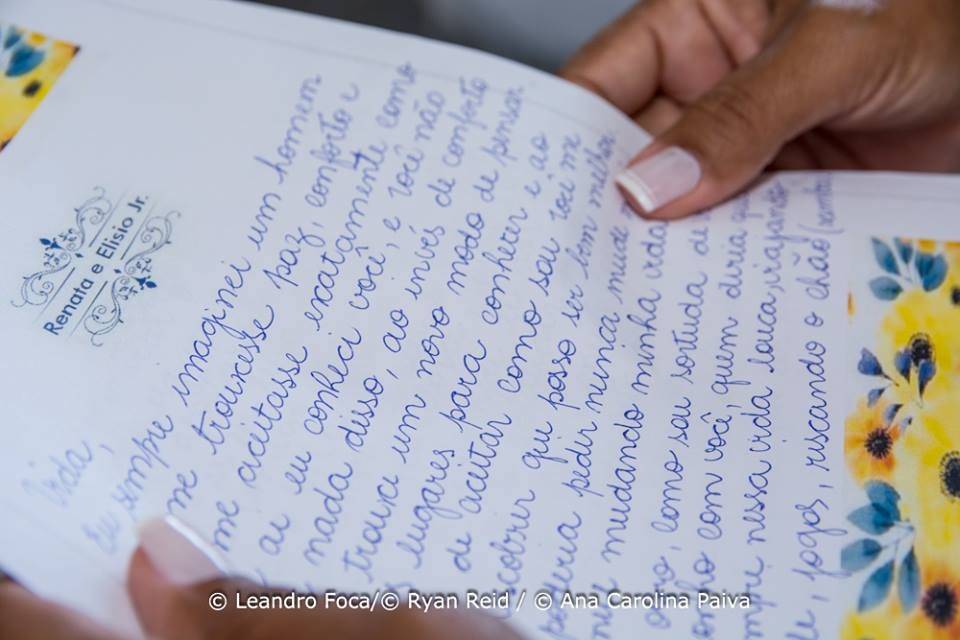 Renata e Elisio Jr.
Vida,
Eu sempre imaginei um homem
me trouxesse paz, conforto e
me aceitasse exatamente como
ai eu conheci você, e você não
nada disso, ao invés de conforto
trouxe um novo modo de pensar
lugares para conhecer e ao
de aceitar como sou você me
que posso ser bem melhor
poderia pedir nunca mude
me mudando minha vida
como sou sortuda de
com você, quem diria
nessa vida louca, viajando
jogos, riscando o chão
© Leandro Foca/© Ryan Reid / © Ana Carolina Paiva